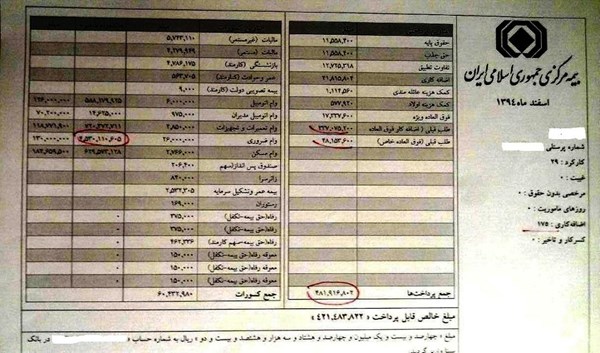 بیمه مرکزی جمهوری اسلامی ایران
اسفند ماه ۱۳۹۴
شماره پرسنلی :
کارکرد : ۲۹
غیبت : ۰
مرخصی بدون حقوق : ۰
روزهای ماموریت : ۰
اضافه‌کاری : ۱۷۵
کسرکار و تاخیر : ۰
حقوق پایه ۱۱,۵۵۸,۴۰۰
حق جذب ۱۱,۵۵۸,۴۰۰
تفاوت تطبیق ۱۲,۷۵۲,۲۱۸
اضافه کاری ۲۱,۸۱۵,۸۰۴
کمک هزینه عائله مندی ۱,۱۱۴,۵۶۰
کمک هزینه اولاد ۵۷۷,۹۲۰
فوق العاده ویژه ۱۷,۳۳۷,۶۰۰
طلب قبلی (اضافه کار فوق العاده) ۳۳۷,۰۷۵,۲۰۰
طلب قبلی (فوق العاده خاص) ۲۸,۱۵۳,۶۰۰
جمع پرداخت‌ها ۴۸۱,۹۱۶,۸۰۲
مالیات (غیرمستمر) ۵,۷۴۳,۱۱۰
مالیات (مستمر) ۴,۲۷۹,۹۴۹
بازنشستگی (کارمند) ۴,۷۸۶,۱۷۵
عمر و حوادث (کارمند) ۵۶۳,۷۰۵
بیمه عمر دولت (کارمند) ۹,۰۰۰
وام اتومبیل ۶,۰۰۰,۰۰۰ ۵۸۸,۱۷۹,۹۲۵
وام اتومبیل مدیران ۹۷۵,۰۰۰ ۱۴,۶۲۵,۰۰۰ ۷۰,۲۰۰,۰۰۰
وام تعمیرات و تجهیزات ۲,۸۵۰,۰۰۰
وام ضروری ۲۶,۰۰۰,۰۰۰ ۲,۵۳۰,۱۱۰,۶۰۵ ۱۳۰,۰۰۰,۰۰۰
وام مسکن ۲,۷۶۶,۰۰۰ ۶۲۹,۵۷۳,۱۲۸ ۱۸۲,۶۵۹,۵۰۰
صندوق پس انداز/سهم ۲۰۶,۴۰۰
زائرسرا ۸۴۰,۰۰۰
بیمه عمر وتشکیل سرمایه ۲,۵۳۲,۳۰۵
رستوران ۱۶۹,۰۰۰
رفاه(حق بیمه-تکفل) ۳۷۵,۰۰۰ ۰
رفاه(حق بیمه-تکفل) ۳۷۵,۰۰۰ ۰
رفاه(حق بیمه-سهم کارمند) ۴۶۲,۳۳۶ ۰
معوقه رفاه (حق بیمه-تکفل) ۱۵۰,۰۰۰ ۰
معوقه رفاه (حق بیمه-تکفل) ۱۵۰,۰۰۰ ۰
معوقه رفاه (حق بیمه-تکفل) ۱۵۰,۰۰۰ ۰
جمع کسورات ۶۰,۴۳۲,۹۸۰
مبلغ خالص قابل پرداخت «۴۲۱,۴۸۳,۸۲۲»
مبلغ «چهارصد و بیست و یک میلیون و چهارصد و هشتاد و سه هزار و هشتصد و بیست و دو» ریال به شماره حساب « » در بانک